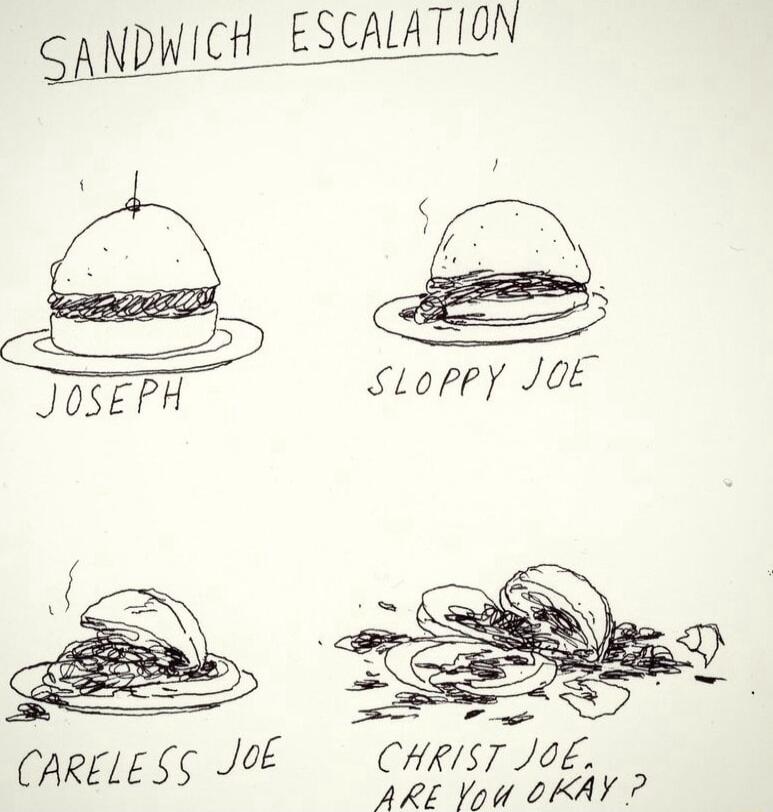 SANDWICH ESCALATION
JOSEPH
SLOPPY JOE
CARELESS JOE
CHRIST JOE.
ARE YOU OKAY?